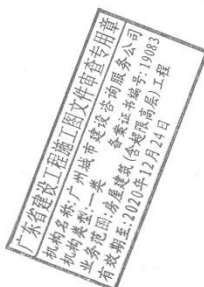 广东省建设工程施工图文件审查专用章
机构名称:广州城市建设咨询服务公司
机构类型:一类 备案证书编号:19083
业务范围:房屋建筑(含超限高层)工程
有效期至:2020年12月24日